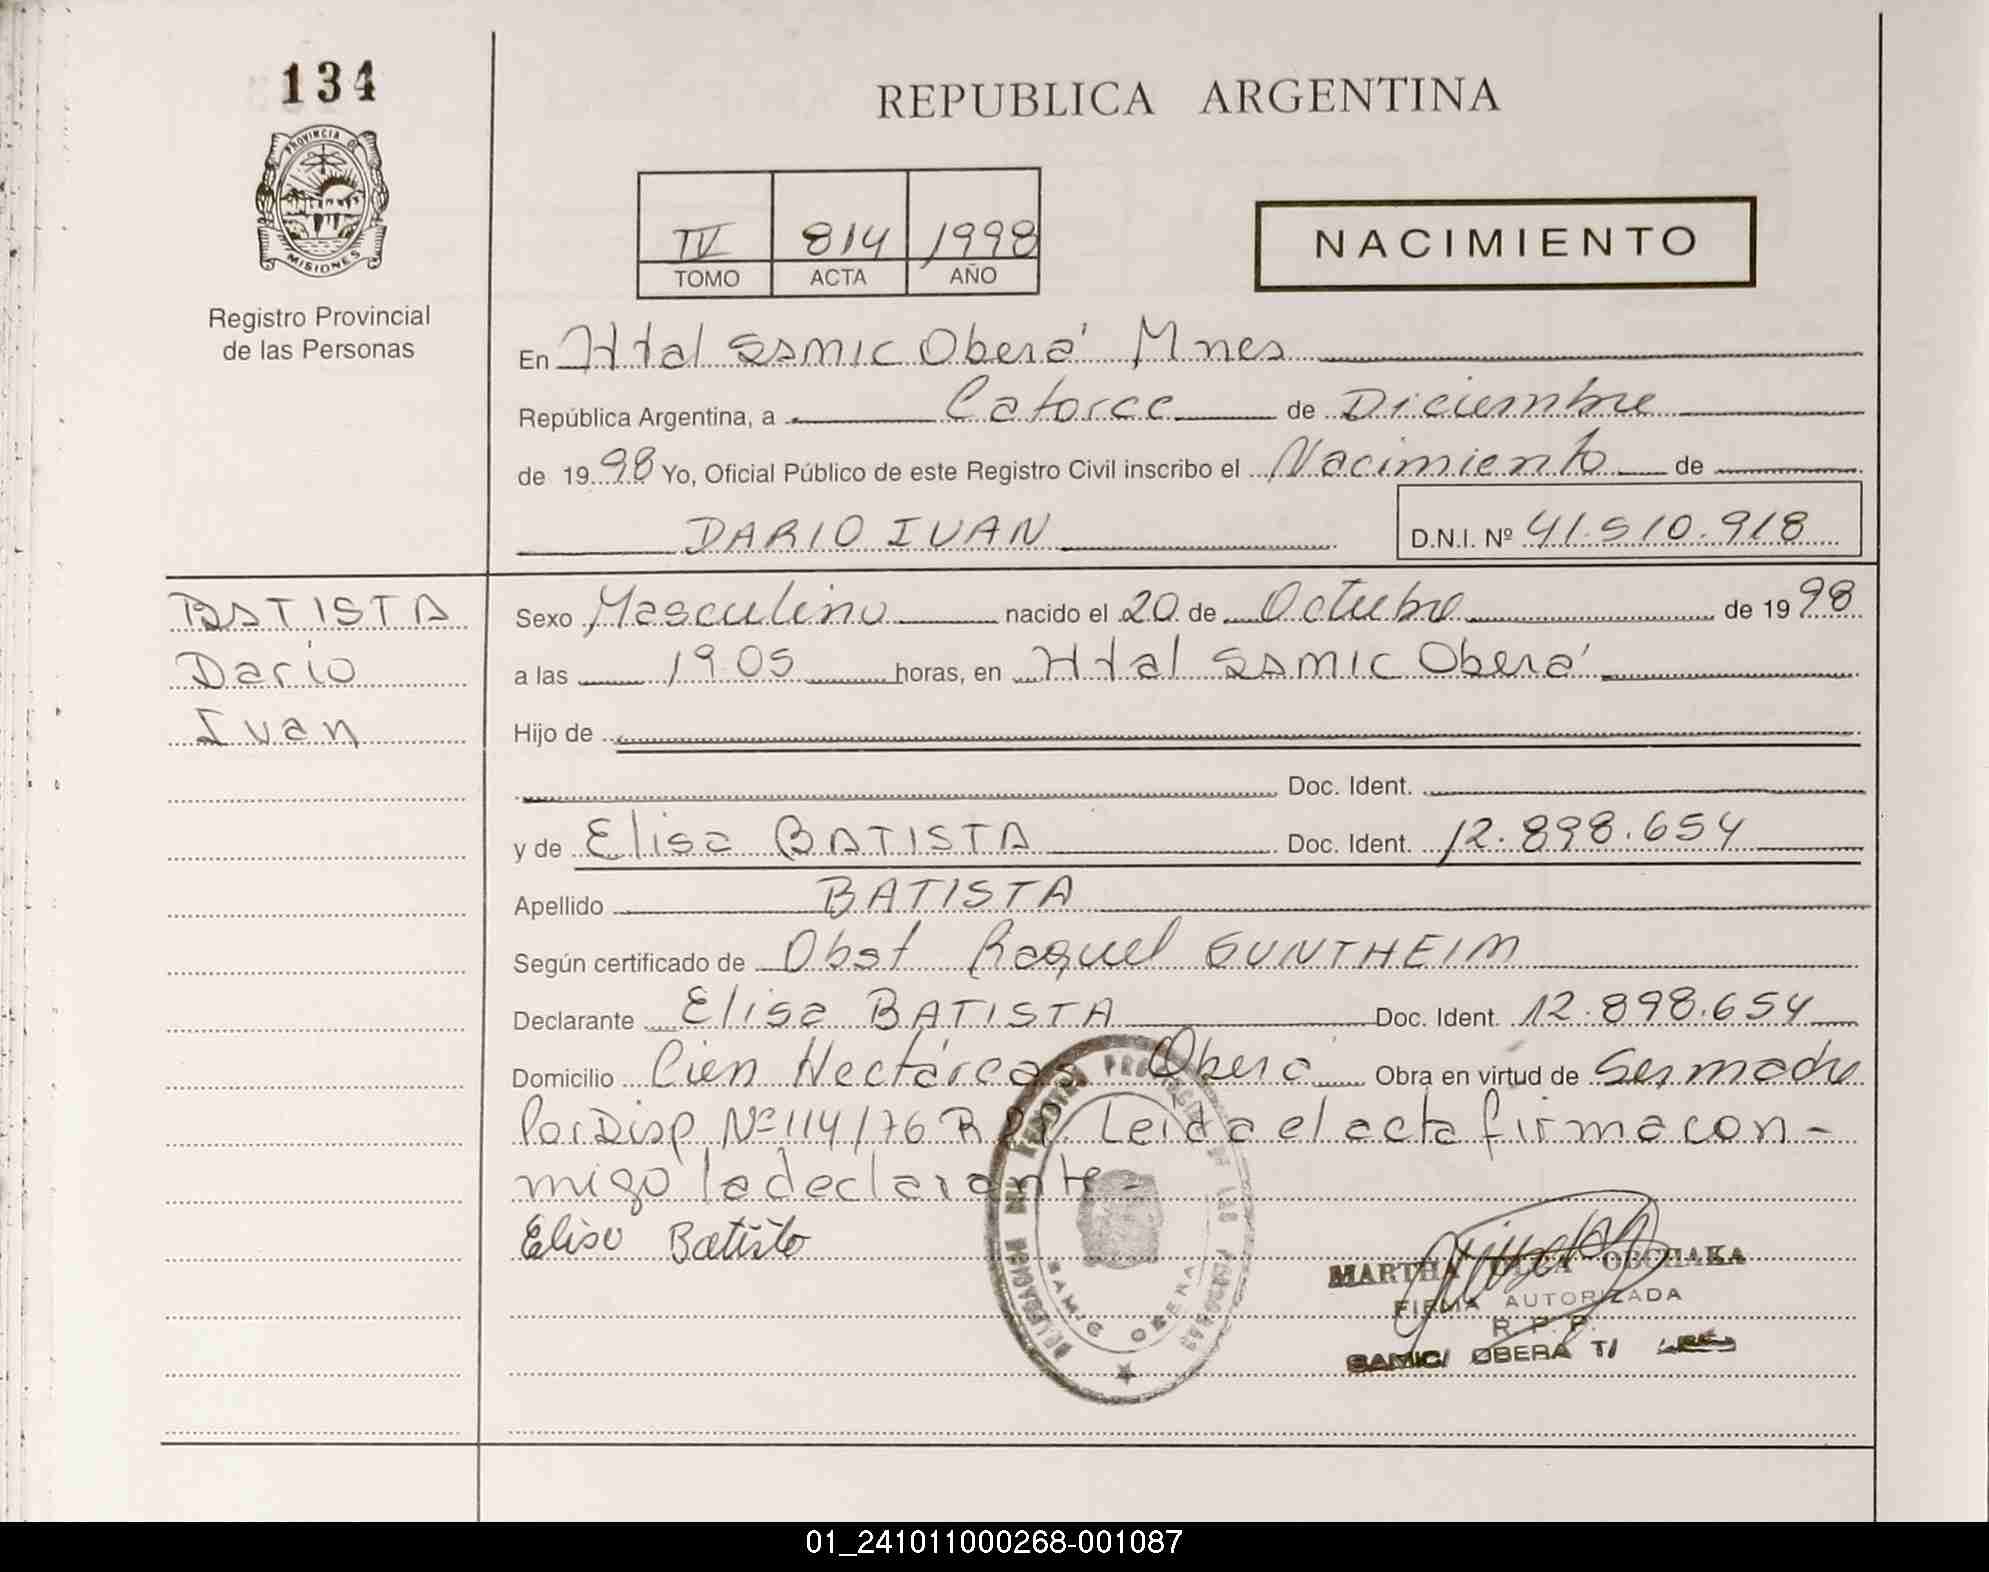 134
REPUBLICA ARGENTINA
PROVINCIA DE
MISIONES
Registro Provincial
de las Personas
IV 814 1998
TOMO ACTA AÑO
NACIMIENTO
En Htal SAMIC Oberá Mnes
República Argentina, a Catorce de Diciembre
de 1998 Yo, Oficial Público de este Registro Civil inscribo el Nacimiento de
DARIO IVAN D.N.I. Nº 41.510.918
BATISTA
Dario
Ivan
Sexo Masculino nacido el 20 de Octubre de 1998
a las 1905 horas, en Htal SAMIC Oberá
Hijo de
Doc. Ident.
y de Elisa BATISTA Doc. Ident. 12.898.654
Apellido BATISTA
Según certificado de Obst Raquel GUNTHEIM
Declarante Elisa BATISTA Doc. Ident. 12.898.654
Domicilio Cien Hectáreas Oberá Obra en virtud de Ser madre
Por Disp Nº 114/76 R.P.P. Leida el acta firma con-
migo la declarante-
Elisa Batista
DELEGACION DEL REGISTRO PROVINCIAL DE LAS PERSONAS
SAMIC OBERA
MARTHA OLGA OBCHAKA
FIRMA AUTORIZADA
R. P. P.
SAMIC/ OBERA T/
01_241011000268-001087